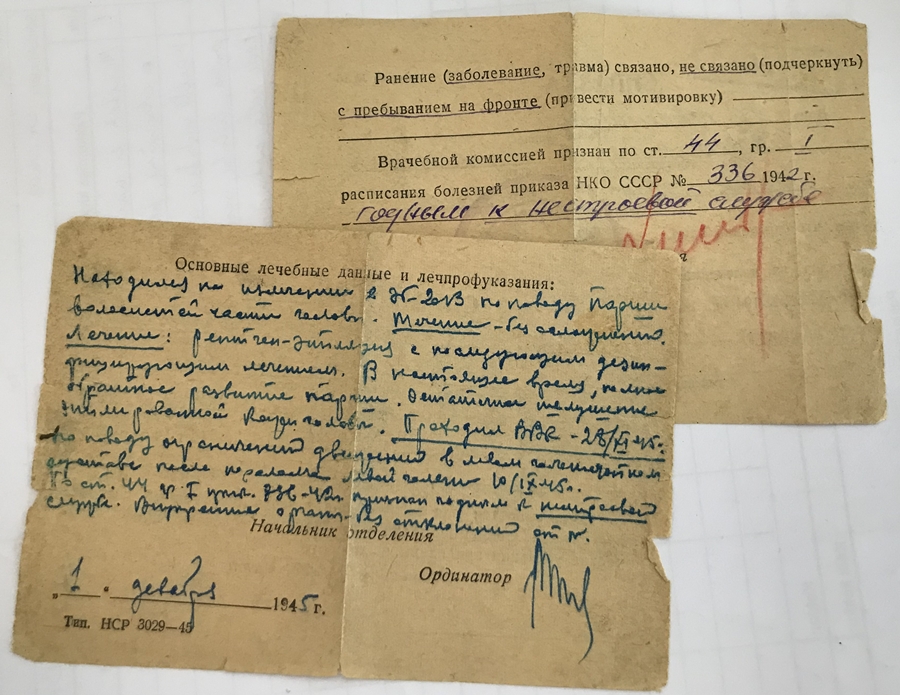 Ранение (заболевание, травма) связано, не связано (подчеркнуть)
с пребыванием на фронте (привести мотивировку)
Врачебной комиссией признан по ст. 44, гр. I
расписания болезней приказа НКО СССР № 336 1942 г.
годным к нестроевой службе
Основные лечебные данные и лечпрофуказания:
Находился на излечении в ЭГ-2013 по поводу парши
волосистой части головы. Течение - без осложнений.
Лечение: рентген-эпиляция с последующим дезин-
фицирующим лечением. В настоящее время, полное
обратное развитие парши. Остаточное шелушение
эпилированной кожи головы. Проходил ВВК - 28/XI-45г.
по поводу ограничений движений в левом голеностопном
суставе после перелома левой голени 10/IX 45г.
По ст. 44 гр. I приказа 336-42г. признан годным к нестроевой
службе. Внутренние органы - без отклонений от N.
Начальник отделения
Ординатор
„ 1 " декабря 1945 г.
Тип. НСР 3029—45